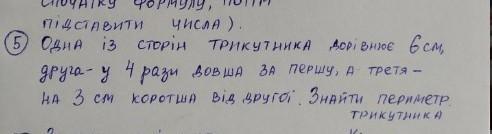 спочатку формулу, потім
підставити числа).
⑤ Одна із сторін трикутника дорівнює 6 см,
друга - у 4 рази довша за першу, а третя -
на 3 см коротша від другої. Знайти периметр
трикутника